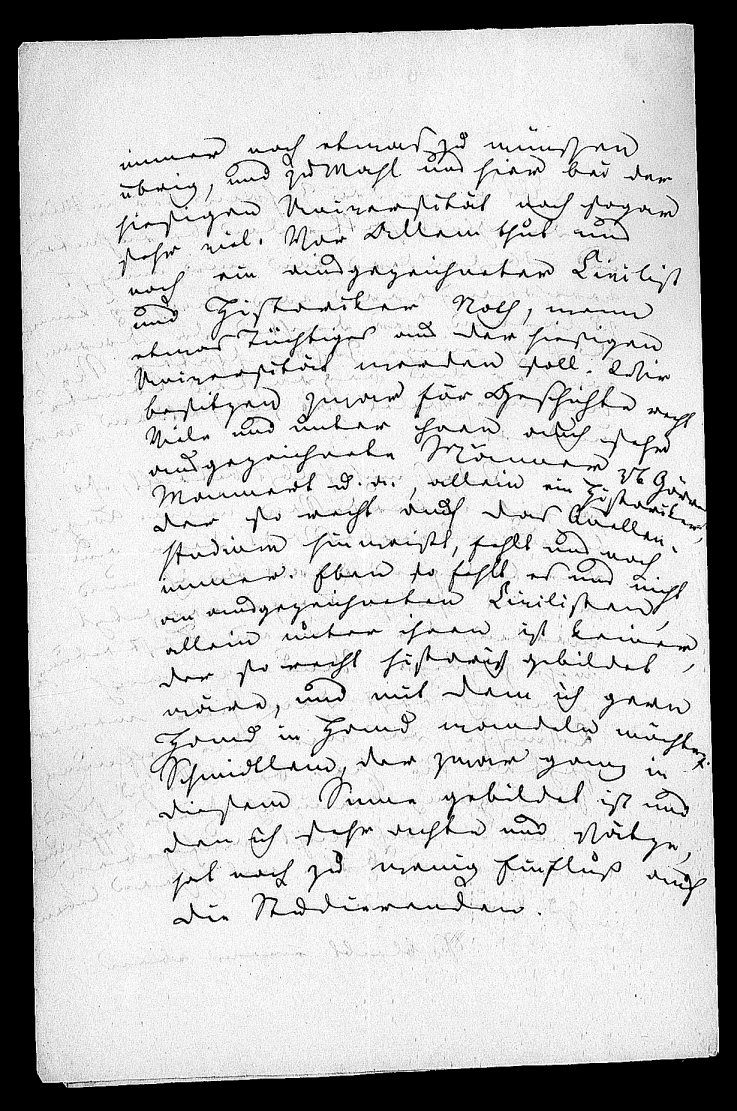 immer noch etwas zu wünschen
übrig, und zumahl und hier bei der
hiesigen Universität noch sogar
sehr viel. Vor Allem thut uns
noch ein ausgezeichneter Civilist
und Historiker Noth, wenn
etwas Tüchtiges aus der hiesigen
Universität werden soll. Wir
besitzen zwar für Geschichte recht
Viele und unter ihnen auch sehr
ausgezeichnete Männer z.b. Görres
Mannert u. a., allein ein Historiker,
der so recht auf das Quellen-
studium hinweist, fehlt uns noch
immer. Eben so fehlt es uns nicht
an ausgezeichneten Civilisten,
allein unter ihnen ist keiner,
der so recht historisch gebildet
wäre, und mit dem ich gern
Hand in Hand wandeln möchte.
Schmidtlein, der zwar ganz in
diesem Sinne gebildet ist und
den ich sehr achte und schätze,
hat noch zu wenig Einfluß auf
die Studierenden.